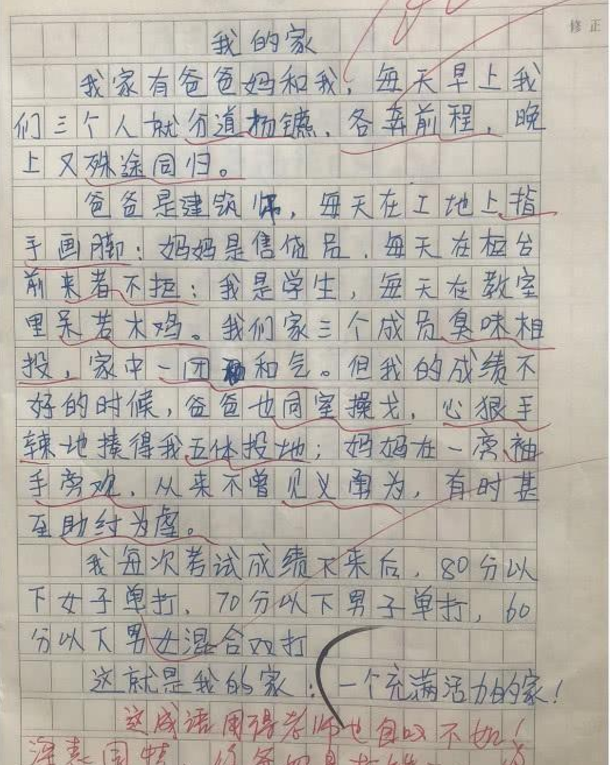 修正
我的家
我家有爸爸妈和我，每天早上我
们三个人就分道扬镳，各奔前程，晚
上又殊途同归。
爸爸是建筑师，每天在工地上指
手画脚；妈妈是售货员，每天在柜台
前来者不拒；我是学生，每天在教室
里呆若木鸡。我们家三个成员臭味相
投，家中一团和气。但我的成绩不
好的时候，爸爸也同室操戈，心狠手
辣地揍得我五体投地；妈妈在一旁袖
手旁观，从来不曾见义勇为，有时甚
至助纣为虐。
我每次考试成绩下来后，80分以
下女子单打，70分以下男子单打，60
分以下男女混合双打
这就是我的家；一个充满活力的家！
这成语用得老师也自叹不如！